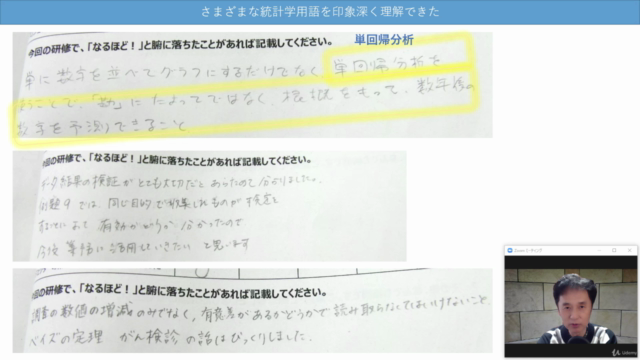 さまざまな統計学用語を印象深く理解できた
今回の研修で、「なるほど!」と腑に落ちたことがあれば記載してください。
単回帰分析
単に数字を並べてグラフにするだけでなく、単回帰分析を
行うことで、「勘」によってではなく、根拠をもって、数年後の
数字を予測できること
今回の研修で、「なるほど!」と腑に落ちたことがあれば記載してください。
データ結果の検証がとても大切だとあらためて分かりました。
例題9では、同じ目的で収集したものが検定を
有効かどうか分かったので
今後業務に活用していきたいと思います
今回の研修で、「なるほど!」と腑に落ちたことがあれば記載してください。
調査の数値の増減のみでなく、有意差があるかどうかで読み取らなくてはいけないこと
ベイズの定理 がん検診の話はびっくりしました。
Udemy